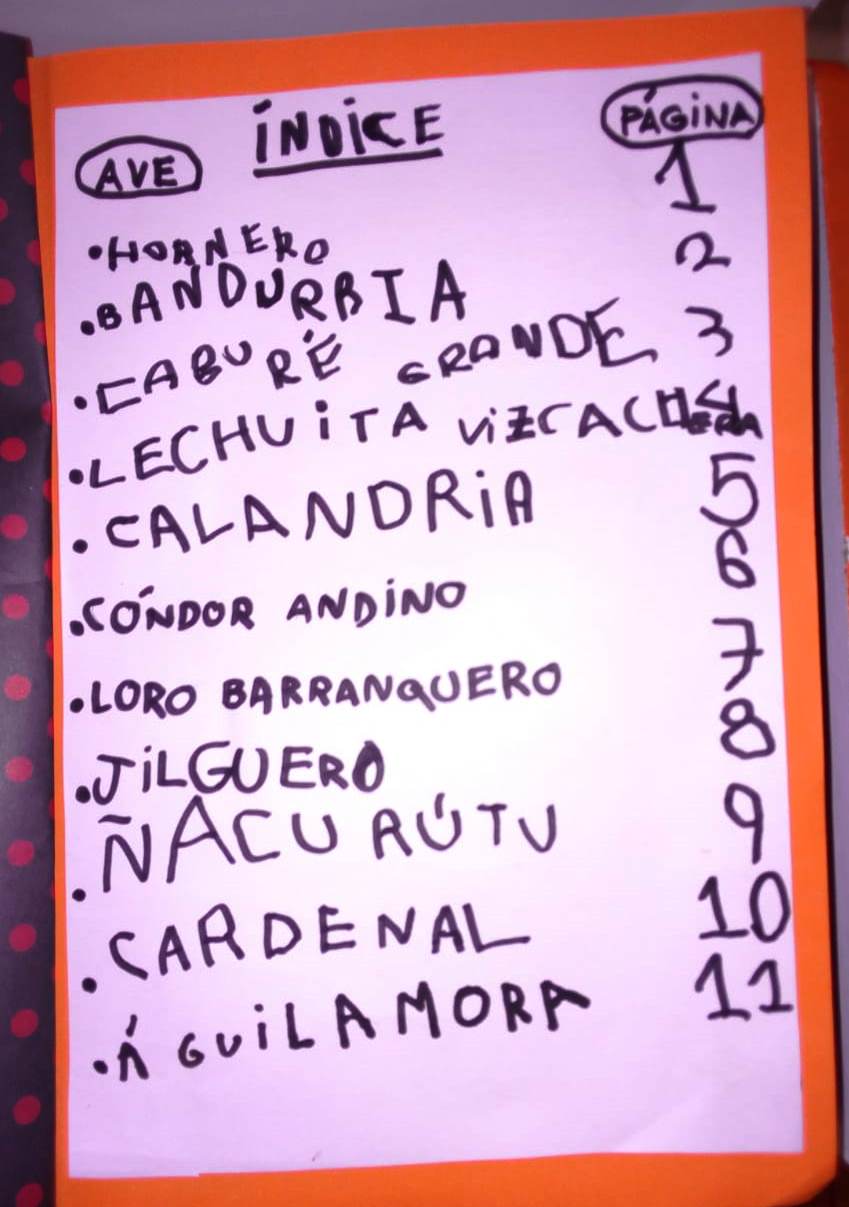 ÍNDICE
AVE PÁGINA
•HORNERO 1
•BANDURRIA 2
•CABURÉ GRANDE 3
•LECHUITA VIZCACHERA 4
•CALANDRIA 5
•CÓNDOR ANDINO 6
•LORO BARRANQUERO 7
•JILGUERO 8
•ÑACURÚTU 9
•CARDENAL 10
•ÁGUILA MORA 11